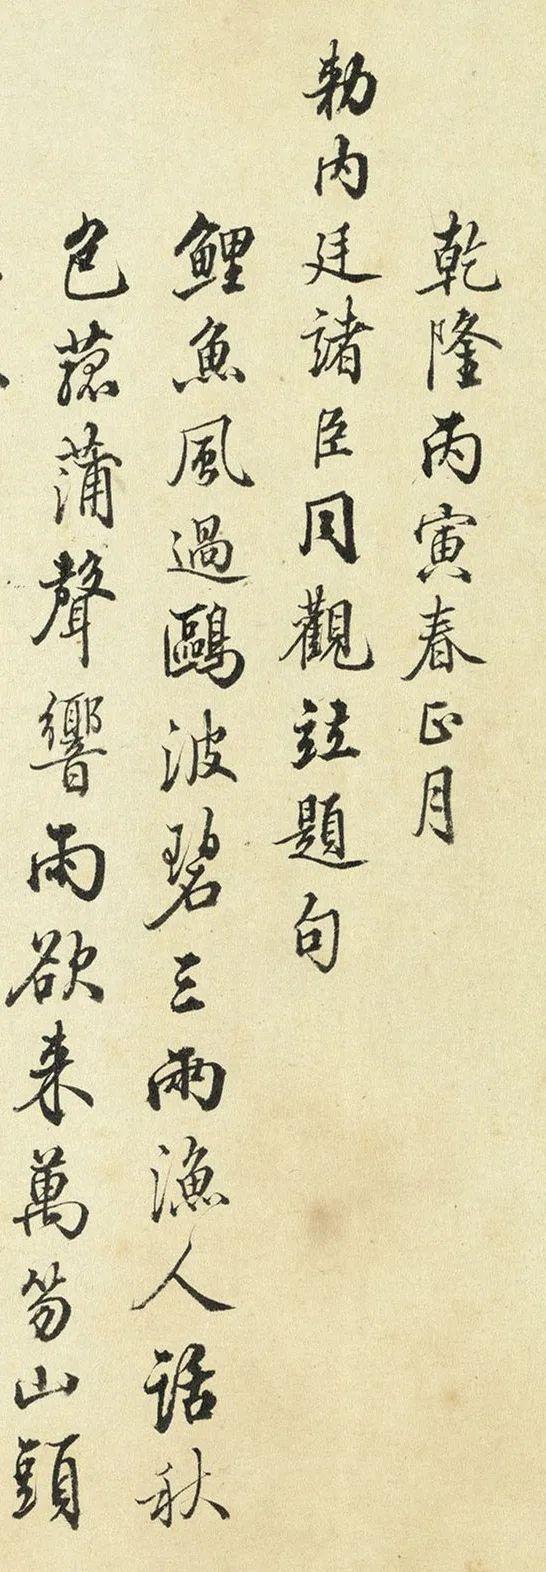 乾隆丙寅春正月
勅内廷諸臣同觀並題句
鯉魚風過鷗波碧三兩漁人話秋
色菰蒲聲響雨欲来萬笏山頭